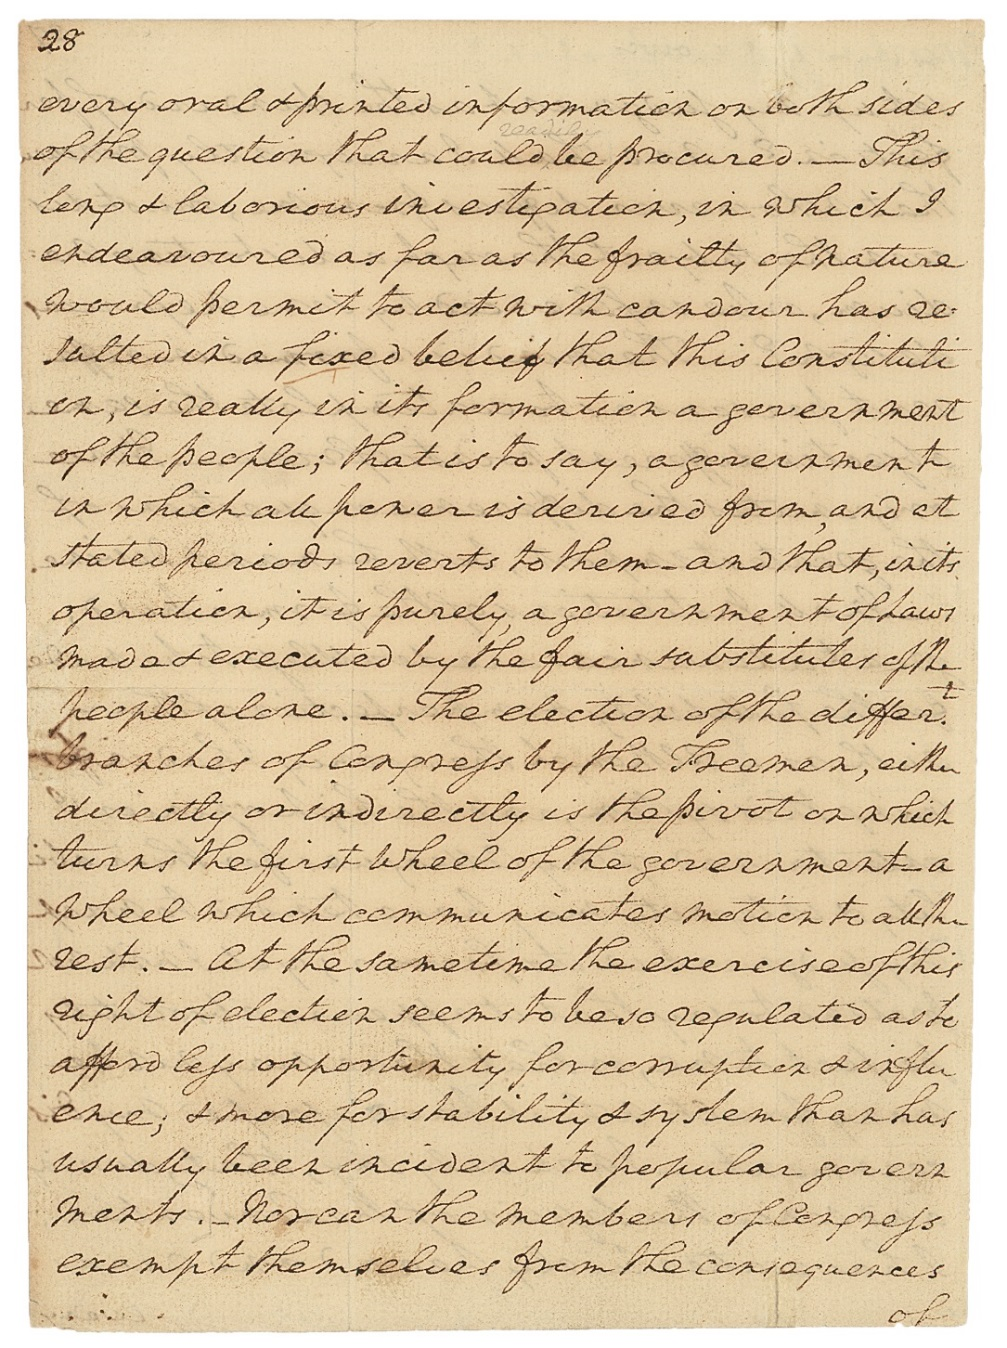 28
every oral & printed information on both sides
readily
of the question that could be procured. — This
long & laborious investigation, in which I
endeavoured as far as the frailty of nature
would permit to act with candour has re-
sulted in a fixed belief that this Constituti
on, is really in its formation a government
of the people; that is to say, a government
in which all power is derived from, and at
stated periods reverts to them - and that, in its
operation, it is purely, a government of Laws
made & executed by the fair substitutes of the
people alone. — The election of the differ.t
branches of Congress by the Freemen, either
directly or indirectly is the pivot on which
turns the first wheel of the government - a
wheel which communicates motion to all the
rest. — At the sametime the exercise of this
right of election seems to be so regulated as to
afford less opportunity for corruption & influ
ence; & more for stability & system than has
usually been incident to popular govern
ments. — Nor can the members of Congress
exempt themselves from the consequences
of